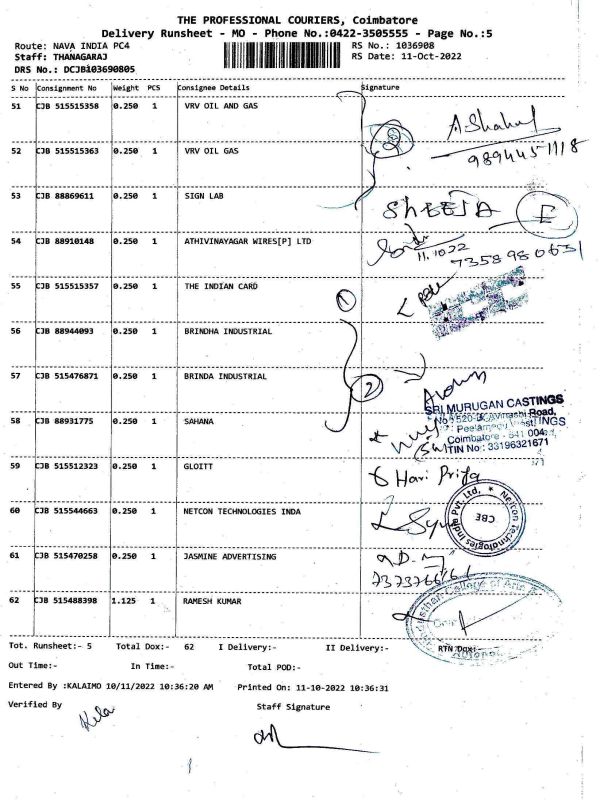 THE PROFESSIONAL COURIERS, Coimbatore
Delivery Runsheet - MO - Phone No.:0422-3505555 - Page No.:5
Route: NAVA INDIA PC4 RS No.: 1036908
Staff: THANAGARAJ RS Date: 11-Oct-2022
DRS No.: DCJB103690805
S No Consignment No Weight PCS Consignee Details Signature
51 CJB 515515358 0.250 1 VRV OIL AND GAS
A.Shahul
2
9894451118
52 CJB 515515363 0.250 1 VRV OIL GAS
53 CJB 88869611 0.250 1 SIGN LAB
SHEEJA E
54 CJB 88910148 0.250 1 ATHIVINAYAGAR WIRES[P] LTD
11.10.22
7358980631
55 CJB 515515357 0.250 1 THE INDIAN CARD
1
56 CJB 88944093 0.250 1 BRINDHA INDUSTRIAL
57 CJB 515476871 0.250 1 BRINDA INDUSTRIAL
2
SRI MURUGAN CASTINGS
Avinashi Road,
58 CJB 88931775 0.250 1 SAHANA
Coimbatore - 641 004.
TIN No : 33196321671
59 CJB 515512323 0.250 1 GLOITT
Hari Priya
60 CJB 515544663 0.250 1 NETCON TECHNOLOGIES INDA
Netcon Technologies India Pvt. Ltd.
CBE
61 CJB 515470258 0.250 1 JASMINE ADVERTISING
62 CJB 515488398 1.125 1 RAMESH KUMAR
College of Arts
Tot. Runsheet:- 5 Total Dox:- 62 I Delivery:- II Delivery:- RTN Dox:-
Out Time:- In Time:- Total POD:-
Entered By :KALAIMO 10/11/2022 10:36:20 AM Printed On: 11-10-2022 10:36:31
Verified By Staff Signature
Kala